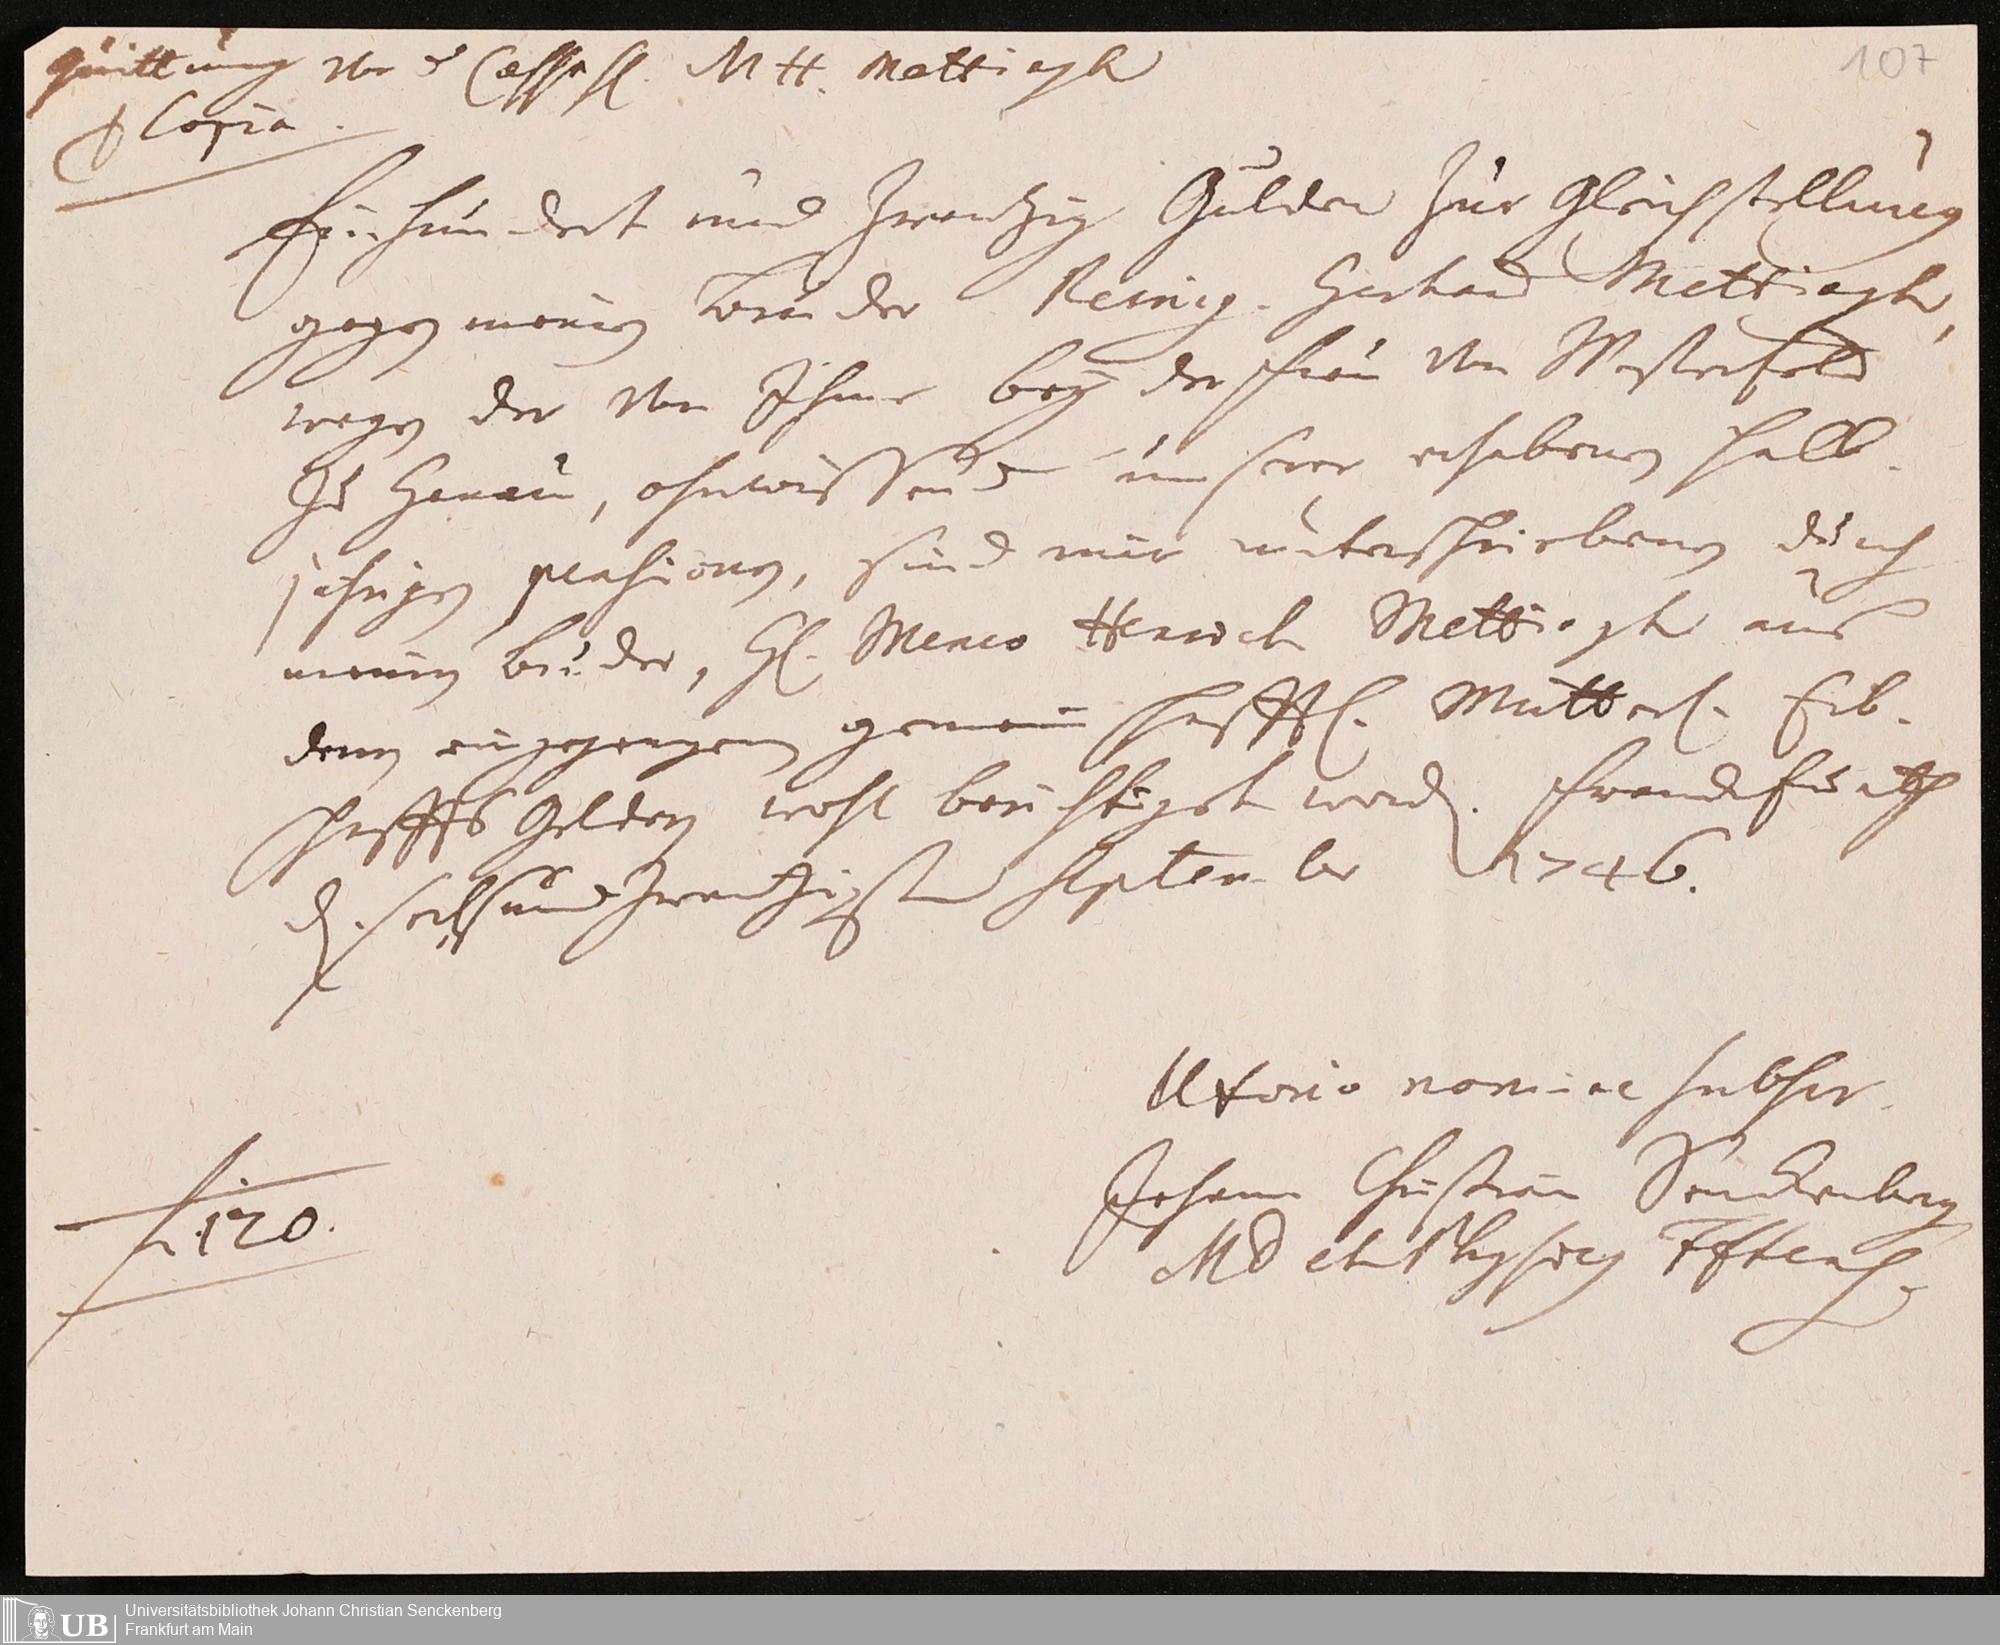 Quittung von d Cassa H. M H. Mettingh
Copia.
107
Einhundert und Zwantzig Gulden Zur Gleichstellung
gegen meinen Bruder Reing. Gerhard Mettingh,
wegen der von Ihme bey der Frau von Westerfeld
Zu Hanau, ohnwissend unserer erhabenen halb-
jahrigen pensionen, sind mir unterschriebenen durch
meinen Bruder, H. Menco Henrich Mettingh aus
denen eingegangenen gemeinschafftl. Mutterl. Erb-
schaffts Geldern wohl berichtiget word. Franckfurth
d. sechsundzwantzigsten September 1746.
Uxorio nomine subscr.
Johann Christian Senckenberg
MD et Physicus
f. 120.
UB
Universitätsbibliothek Johann Christian Senckenberg
Frankfurt am Main